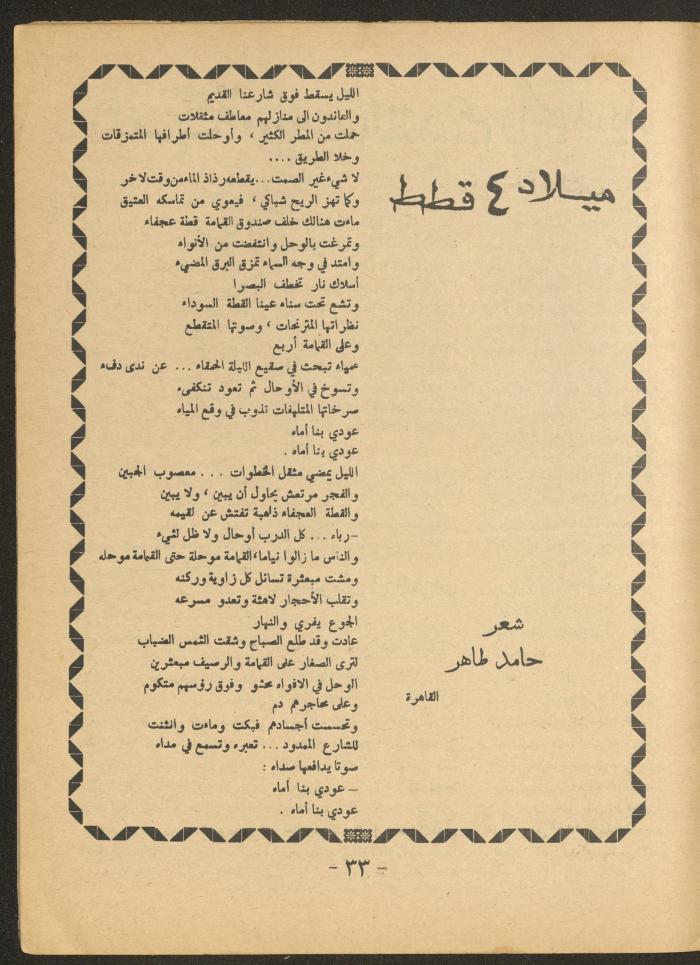 ميلاد ٤ قطط
شعر
حامد طاهر
القاهرة
الليل يسقط فوق شارعنا القديم
والعائدون الى منازلهم معاطف مثقلات
حملت من المطر الكثير ، وأوحلت أطرافها المتمزقات
وخلا الطريق ....
لا شيء غير الصمت ... يقطعه رذاذ الماء من وقت لاخر
وكما تهز الريح شباكي ، فيعوي من تماسكه العتيق
ماءت هنالك خلف صندوق القمامة قطة عجفاء
وتمرغت بالوحل وانتفضت من الأنواء
وامتد في وجه السماء تمزق البرق المضيء
أسلاك نار تخطف البصرا
وتشع تحت سناه عينا القطة السوداء
نظراتها المترنحات ، وصوتها المتقطع
وعلى القمامة أربع
عمياء تبحث في صقيع الليلة الحمقاء ... عن ندى دفء
وتسوخ في الأوحال ثم تعود تنكفىء
صرخاتها المتلهفات تذوب في وقع المياه
عودي بنا أماه
عودي بنا أماه .
الليل يمضي مثقل الخطوات . . . معصوب الجبين
والفجر مرتعش يحاول أن يبين ، ولا يبين
والقطة العجفاء ذاهبة تفتش عن لقيمه
-رباه ... كل الدرب أوحال ولا ظل لشيء
والناس ما زالوا نياما، القمامة موحلة حتى القمامة موحله
ومشت مبعثرة تسائل كل زاوية وركنه
وتقلب الأحجار لاهثة وتعدو مسرعه
الجوع يفري والنهار
عادت وقد طلع الصباح وشقت الشمس الضباب
لترى الصغار على القمامة والرصيف مبعثرين
الوحل في الافواه محشو وفوق رؤسهم متكوم
وعلى محاجرهم دم
وتحسست أجسادهم فبكت وماءت وانثنت
للشارع الممدود ... تعبره وتسمع في مداه
صوتا يدافعها صداه :
– عودي بنا أماه
عودي بنا أماه .
- ٣٣ -